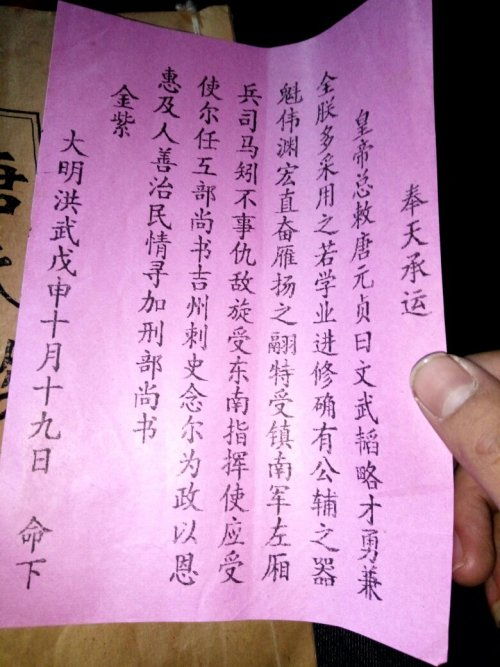 奉天承运
皇帝总敕唐元贞曰文武韬略才勇兼
全朕多采用之若学业进修确有公辅之器
魁伟渊宏直奋雁扬之翮特受镇南军左厢
兵司马矧不事仇敌旋受东南指挥使应受
使尔任工部尚书吉州刺史念尔为政以恩
惠及人善治民情寻加刑部尚书
金紫
大明洪武戊申十月十九日 命下